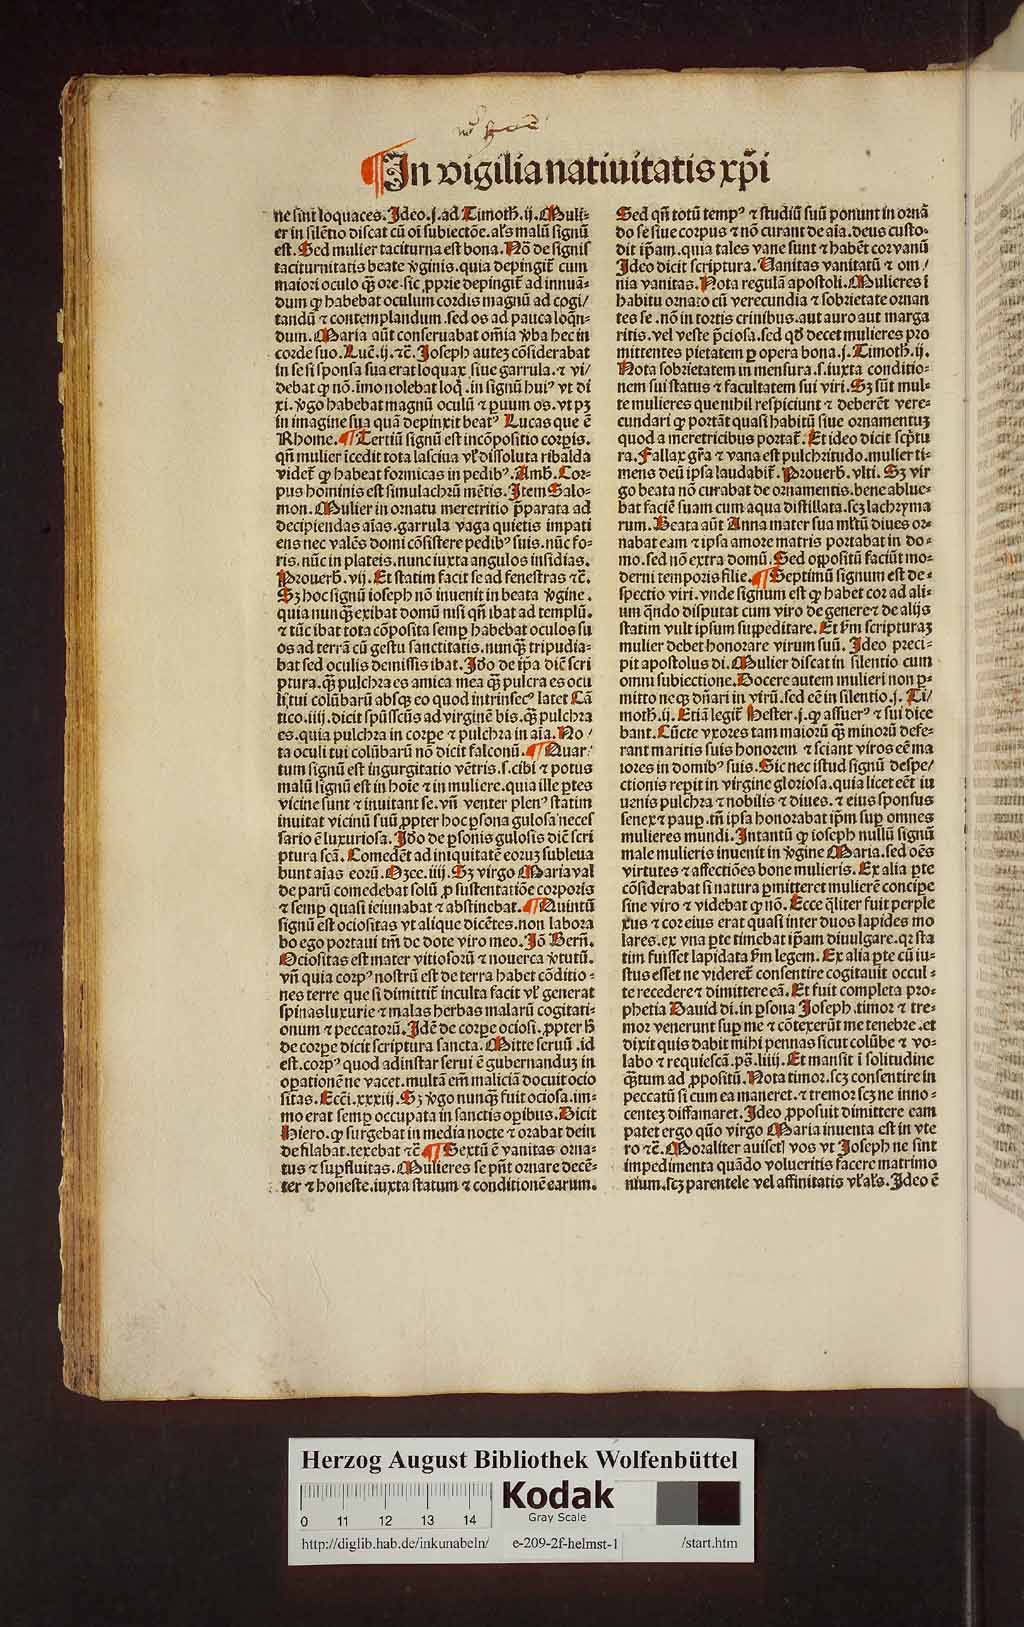 ¶In vigilia natiuitatis xp̄i
ne sint loquaces. Ideo .j. ad Timoth̄. ij. Muli⸗
er in silētio discat cū oī subiectōe. al̄s malū signū
est. Sed mulier taciturna est bona. Nō de signis
taciturnitatis beate v̄ginis. quia depingit̄ cum
maiori oculo q̄ȝ ore. sic ꝓprie depingit̄ ad innuā⸗
dum ꝙ habebat oculum cordis magnū ad cogi/
tandū ⁊ contemplandum. sed os ad pauca loq̄n⸗
dum. Maria aūt conseruabat om̄ia v̄ba hec in
corde suo. Luc̄. ij. ⁊c̄. Joseph autez cōsiderabat
in se si sponsa sua erat loquax siue garrula. ⁊ vi/
debat ꝙ nō. īmo nolebat loq̄. in signū huiꝰ vt di
xi. v̄go habebat magnū oculū ⁊ ꝑuum os. vt pȝ
in imagine sua quā depinxit beatꝰ Lucas que ē
Rhome. ¶ Tertiū signū est incōpositio corꝑis.
qn̄ mulier īcedit tota lasciua vl̄ dissoluta ribalda
videt̄ ꝙ habeat formicas in pedibꝰ. Amb̄. Cor⸗
pus hominis est simulachrū mētis. Item Salo⸗
mon. Mulier in ornatu meretritio p̄parata ad
decipiendas aīas. garrula vaga quietis impati
ens nec valēs domi cōsistere pedibꝰ suis. nūc fo⸗
ris. nūc in plateis. nunc iuxta angulos insidias.
Prouerb̄. vij. Et statim facit se ad fenestras ⁊c̄.
Sȝ hoc signū ioseph nō inuenit in beata v̄gine.
quia nunq̄ȝ exibat domū nisi qn̄ ibat ad templū.
⁊ tūc ibat tota cōposita semꝑ habebat oculos su
os ad terrā cū gestu sanctitatis. nunq̄ȝ tripudia⸗
bat sed oculis demissis ibat. Iō de ip̄a dic̄ scri
ptura. q̄ȝ pulchra es amica mea q̄ȝ pulcra es ocu
li tui colūbarū absqȝ eo quod intrinsecꝰ latet Cā
tico. iiij. dicit spūsscūs ad virginē bis. q̄ȝ pulchra
es. quia pulchra in corpe ⁊ pulchra in aīa. No/
ta oculi tui colūbarū nō dicit falconū. ¶ Quar/
tum signū est ingurgitatio vētris. s. cibi ⁊ potus
malū signū est in hoīe ⁊ in muliere. quia ille ꝑtes
vicine sunt ⁊ inuitant se. vn̄ venter plenꝰ statim
inuitat vicinū suū ꝓpter hoc ꝑsona gulosa neces
sario ē luxuriosa. Iō de ꝑsonis gulosis dic̄ scri
ptura scā. Comedēt ad iniquitatē eoruȝ subleua
bunt aīas eorū. Ozee. iiij. Sȝ virgo Maria val
de parū comedebat solū ꝓ sustentatiōe corporis
⁊ semꝑ quasi ieiunabat ⁊ abstinebat. ¶ Quintū
signū est ociositas vt alique dicētes. non labora
bo ego portaui tm̄ de dote viro meo. Jō Bern̄.
Ociositas est mater vitiosorū ⁊ nouerca v̄tutū.
vn̄ quia corpꝰ nostrū est de terra habet cōditio⸗
nes terre que si dimittit̄ inculta facit vl̄ generat
spinas luxurie ⁊ malas herbas malarū cogitati⸗
onum ⁊ peccatorū. Idē de corpe ociosi. ꝓpter h̄
de corpe dicit scriptura sancta. Mitte seruū .id
est. corpꝰ quod adinstar serui ē gubernanduȝ in
oꝑationē ne vacet. multā em̄ maliciā docuit ocio
sitas. Ecc̄i. xxxiij. Sȝ v̄go nunq̄ȝ fuit ociosa. im⸗
mo erat semꝑ occupata in sanctis oꝑibus. Dicit
Hiero. ꝙ surgebat in media nocte ⁊ orabat dein
de filabat. texebat ⁊c̄ ¶ Sextū ē vanitas orna⸗
tus ⁊ suꝑfluitas. Mulieres se pn̄t ornare decē⸗
ter ⁊ honeste. iuxta statum ⁊ conditionē earum.
Sed qn̄ totū tempꝰ ⁊ studiū suū ponunt in ornā
do se siue corpus ⁊ nō curant de aīa. deus custo⸗
dit ip̄am. quia tales vane sunt ⁊ habēt cor vanū
Ideo dicit scriptura. Vanitas vanitatū ⁊ om/
nia vanitas. Nota regulā apostoli. Mulieres ī
habitu ornato cū verecundia ⁊ sobrietate ornan
tes se. nō in tortis crinibus. aut auro aut marga
ritis. vel veste p̄ciosa. sed qd̄ decet mulieres pro
mittentes pietatem ꝑ opera bona. j. Timoth̄. ij.
Nota sobrietatem in mensura. s. iuxta conditio⸗
nem sui status ⁊ facultatem sui viri. Sȝ sūt mul⸗
te mulieres que nihil respiciunt ⁊ deberēt vere⸗
cundari ꝙ portāt quasi habitū siue ornamentuȝ
quod a meretricibus portat̄. Et ideo dicit scp̄tu
ra. Fallax gr̄a ⁊ vana est pulchritudo. mulier ti⸗
mens deū ipsa laudabit̄. Prouerb̄. vlti. Sȝ vir
go beata nō curabat de ornamentis. bene ablue⸗
bat faciē suam cum aqua distillata. scȝ lachryma
rum. Beata aūt Anna mater sua ml̄tū diues or⸗
nabat eam ⁊ ipsa amore matris portabat in do⸗
mo. sed nō extra domū. Sed oppositū faciūt mo⸗
derni temporis filie. ¶ Septimū signum est de⸗
spectio viri. vnde signum est ꝙ habet cor ad ali⸗
um q̄ndo disputat cum viro de genere ⁊ de alijs
statim vult ipsum suppeditare. Et s̄m scripturaȝ
mulier debet honorare virum suū. Ideo preci⸗
pit apostolus di. Mulier discat in silentio cum
omni subiectione. Docere autem mulieri non ꝑ⸗
mitto neqȝ dn̄ari in virū. sed eē in silentio. j. Ti/
moth̄. ij. Etiā legit̄ Hester. j. ꝙ assuerꝰ ⁊ sui dice
bant. Cūcte vxores tam maiorū q̄ȝ minorū defe⸗
rant maritis suis honorem ⁊ sciant viros eē ma
iores in domibꝰ suis. Sic nec istud signū despe/
ctionis reꝑit in virgine gloriosa. quia licet eēt iu
uenis pulchra ⁊ nobilis ⁊ diues. ⁊ eius sponsus
senex ⁊ pauꝑ. tn̄ ipsa honorabat ip̄m suꝑ omnes
mulieres mundi. Intantū ꝙ ioseph nullū signū
male mulieris inuenit in v̄gine Maria. sed oēs
virtutes ⁊ affectiōes bone mulieris. Ex alia ꝑte
cōsiderabat si natura ꝑmitteret mulierē concipe
sine viro ⁊ videbat ꝙ nō. Ecce q̄liter fuit perple
xus ⁊ cor eius erat quasi inter duos lapides mo
lares. ex vna ꝑte timebat ip̄am diuulgare. qꝛ sta
tim fuisset lapidata s̄m legem. Ex alia ꝑte cū iu⸗
stus esset ne videret̄ consentire cogitauit occul⸗
te recedere ⁊ dimittere eā. Et fuit completa pro⸗
phetia Dauid di. in ꝑsona Joseph. timor ⁊ tre⸗
mor venerunt suꝑ me ⁊ cōtexerūt me tenebre. et
dixit quis dabit mihi pennas sicut colūbe ⁊ vo⸗
labo ⁊ requiescā. ps̄. liiij. Et mansit ī solitudine
q̄ȝtum ad ꝓpositū. Nota timor. scȝ consentire in
peccatū si cum ea maneret. ⁊ tremor scȝ ne inno⸗
centeȝ diffamaret. Ideo ꝓposuit dimittere eam
patet ergo quō virgo Maria inuenta est in vte
ro ⁊c̄. Moraliter auisetl vos vt Joseph ne sint
impedimenta quādo volueritis facere matrimo
nium. scȝ parentele vel affinitatis vl̄ al̄s. Ideo ē
Herzog August Bibliothek Wolfenbüttel
Kodak
Gray Scale
0 11 12 13 14
http://diglib.hab.de/inkunabeln/ e-209-2f-helmst-1 /start.htm